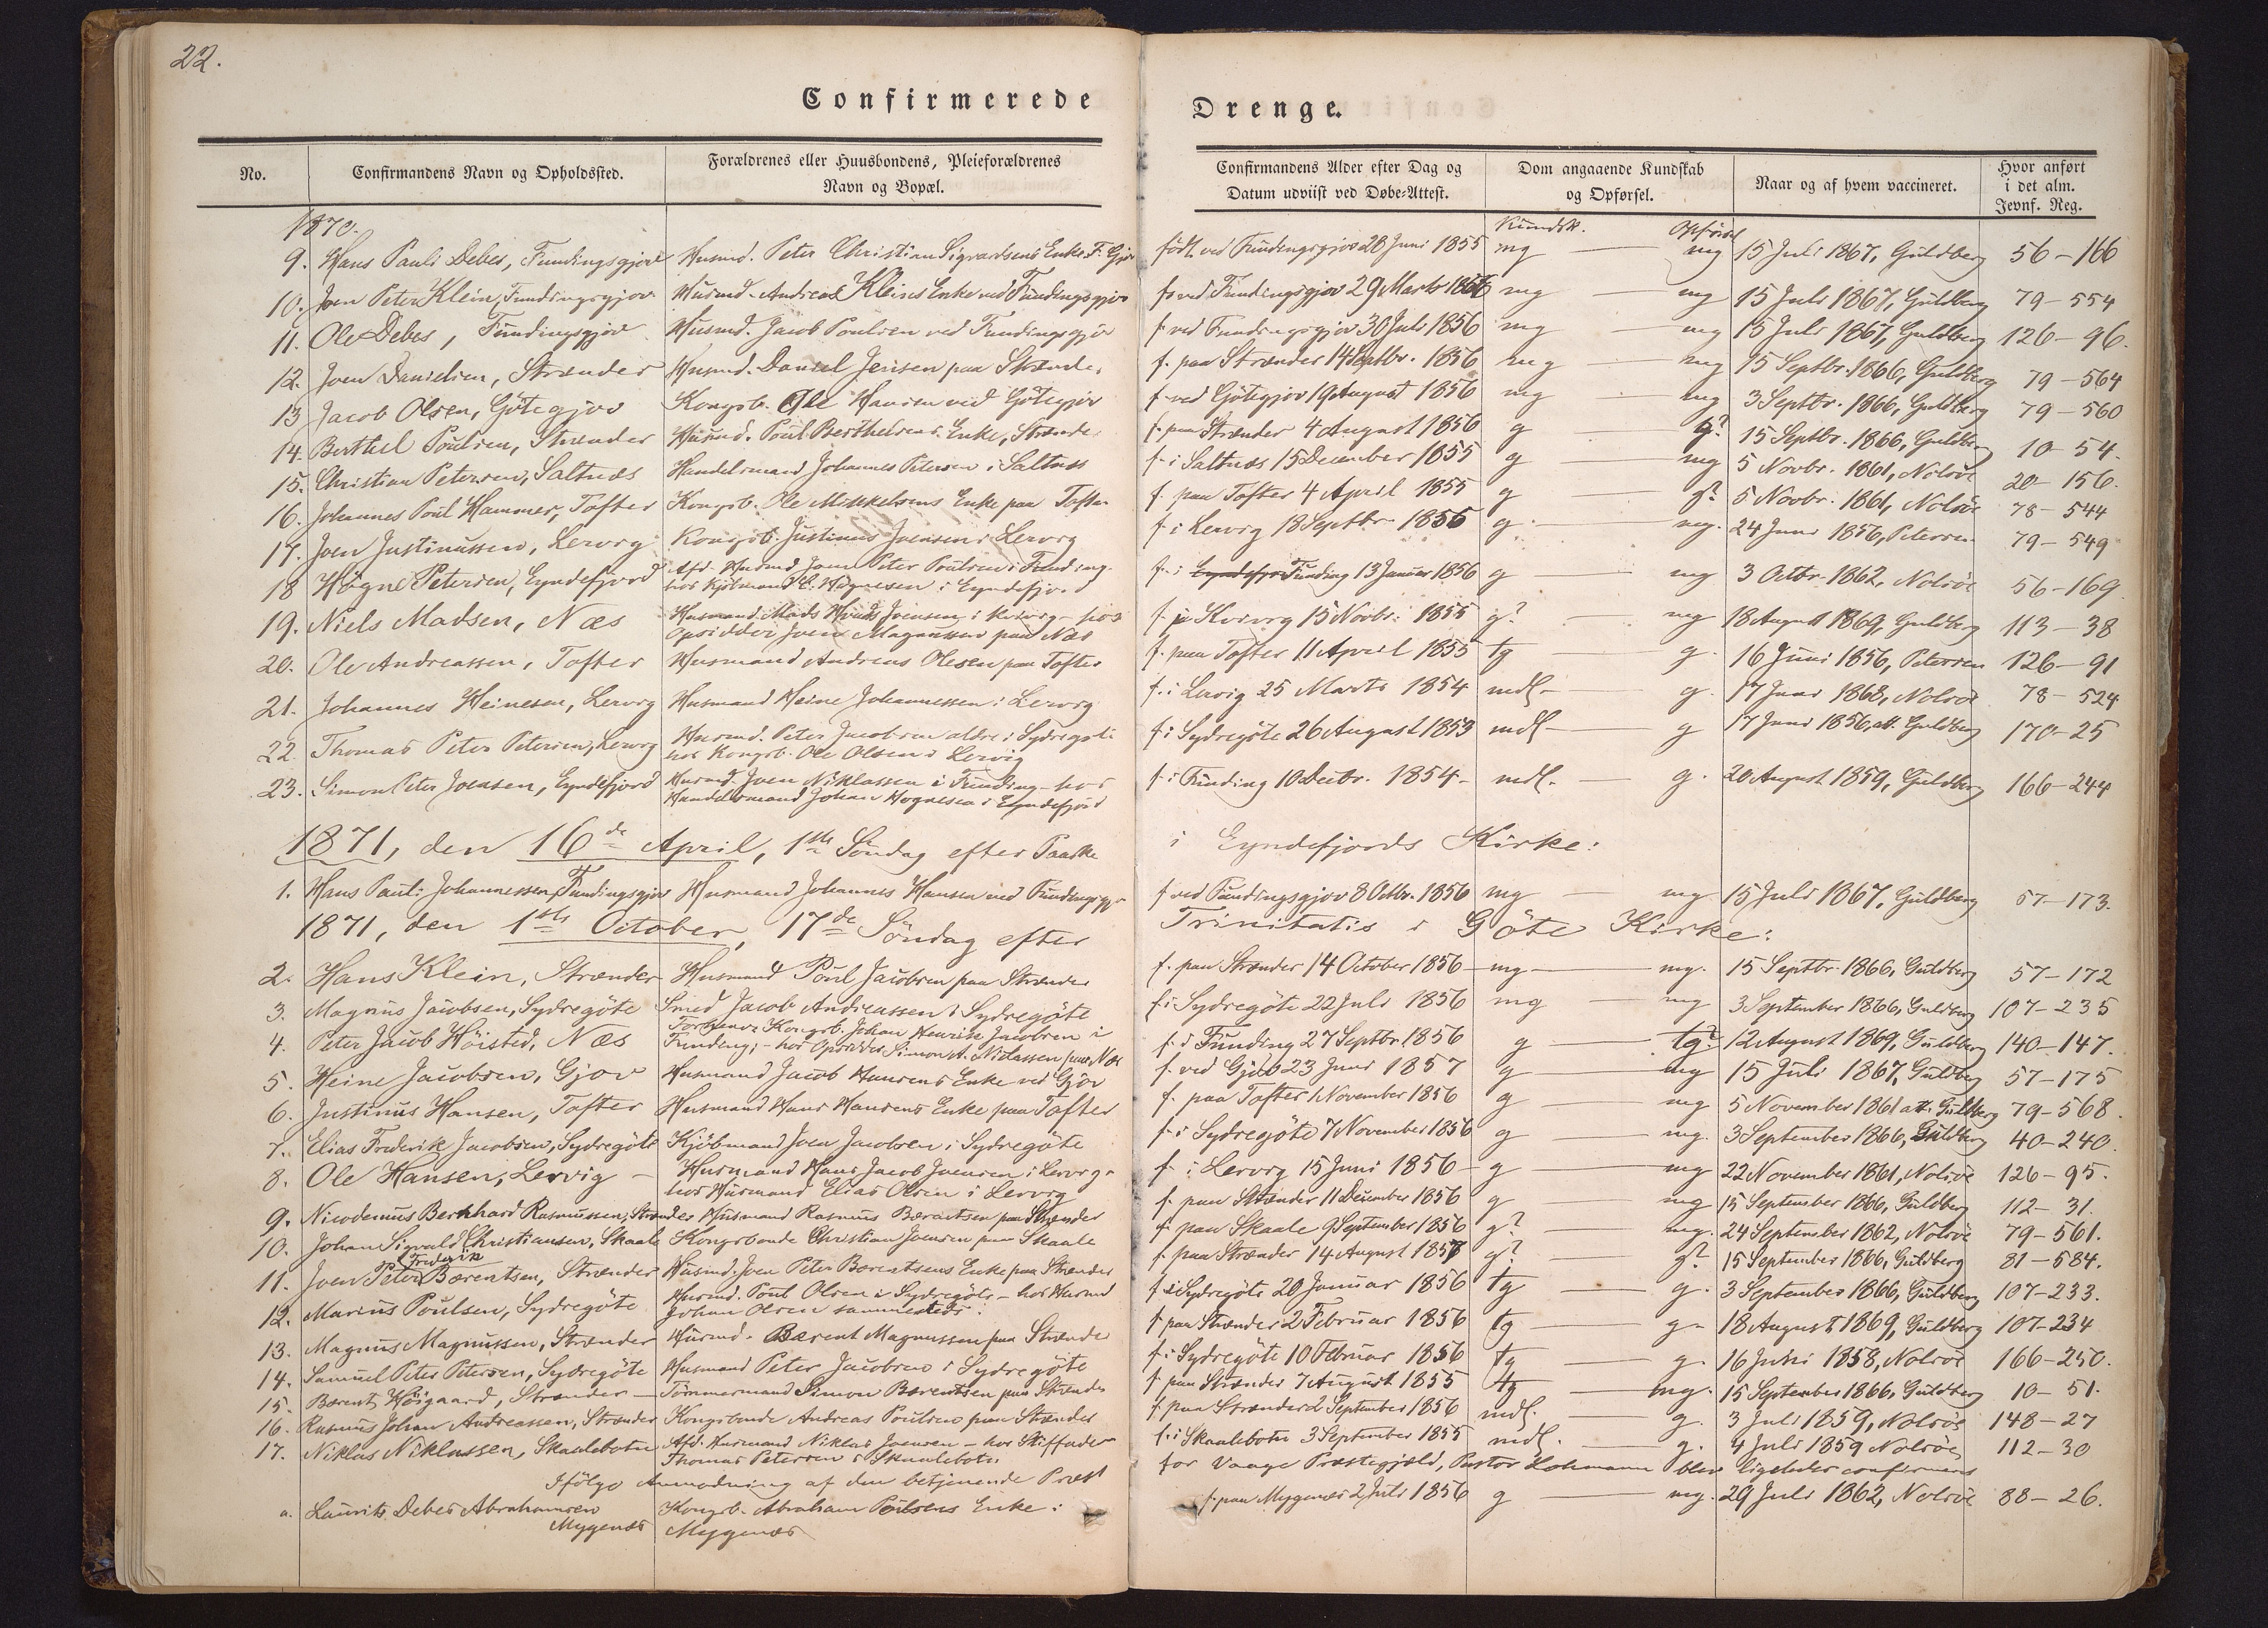 22.
Confirmerede Drenge.
No. Confirmandens Navn og Opholdssted. Forældrenes eller Huusbondens, Pleieforældrenes Navn og Bopæl. Confirmandens Alder efter Dag og Datum udviist ved Døbe-Attest. Dom angaaende Kundskab og Opførsel. Naar og af hvem vaccineret. Hvor anført i det alm. Jevnf. Reg.
1870. Kundsk. Opförsel
9. Hans Pauli Debes, Fundingsgjov Husmd. Peter Christian Sigvardsens Enke, F. Gjov födt ved Fundingsgjov 20 Juni 1855 mg mg 15 Juli 1867, Guldberg 56-166
10. Joen Peter Klein, Fundingsgjov Husmd. Andreas Kleins Enke ved Fundingsgjov f. ved Fundingsgjov 29 Marts 1856 mg mg 15 Juli 1867, Guldberg 79-554
11. Ole Debes, Fundingsgjov Husmd. Jacob Poulsen ved Fundingsgjov f. ved Fundingsgjov 30 Juli 1856 mg mg 15 Juli 1867, Guldberg 126-96.
12. Joen Danielsen, Strænder Husmd. Daniel Jensen paa Strænder f. paa Strænder 14 Septbr. 1856 mg mg 15 Septbr. 1866, Guldberg 79-564
13 Jacob Olsen, Götegjov Kongsb. Ole Hansen ved Götegjov f. ved Götegjov 19 August 1856 mg mg 3 Septbr. 1866, Guldberg 79-560
14. Berthel Poulsen, Strænder Husmd. Poul Berthelsens Enke, Strænder f. paa Strænder 4 August 1856 g g? 15 Septbr. 1866, Guldberg 10-54.
15. Christian Petersen, Saltnæs Handelsmand Johannes Petersen i Saltnæs f. i Saltnæs 15 December 1855 g mg 5 Novbr. 1861, Nolsöe 20-156.
16. Johannes Poul Hammer, Tofter Kongsb. Ole Mikkelsens Enke paa Tofter f. paa Tofter 4 April 1855 g g? 5 Novbr. 1861, Nolsöe 78-544
17. Joen Justinussen, Lervig Kongsb. Justinus Joensen i Lervig f. i Lervig 18 Septbr. 1855 g mg. 24 Juni 1856, Petersen 79-549
18 Högne Petersen, Eyndefjord Afd. Husmd. Joen Peter Poulsen i Funding- hos Kjöbmand E. Högnesen i Eyndefjord f. i Eyndefjor Funding 13 Januar 1856 g mg 3 Octbr. 1862, Nolsöe 56-169
19. Niels Madsen, Næs Husmand Mads Joensen i Kvivig - hos Opsidder Joen Magnussen paa Næs f. i Kvivig 15 Novbr. 1855 g? mg 18 August 1869, Guldberg 113-38
20. Ole Andreassen, Tofter Husmand Andreas Olesen paa Tofter f. paa Tofter 11 April 1855 tg g. 16 Juni 1856, Petersen 126-91
21. Johannes Heinesen, Lervig Husmand Heine Johannessen i Lervig f. i Lervig 25 Marts 1854 mdl- g. 17 Juni 1868, Nolsöe 78-524
22. Thomas Peter Petersen, Lervig Husmd. Peter Jacobsen ældre i Sydregöte hos Kongsb. Ole Olsen i Lervig f. i Sydregöte 26 August 1853 mdl- g 17 Juni 1856, att. Guldberg 170-25
23. Simon Peter Joensen, Eyndefjord Husmd. Joen Niklassen i Funding - hos Handelsmand Johan Hognesen i Eyndefjord f. i Funding 10 Decbr. 1854- mdl. g. 20 August 1859, Guldberg 166-244
1871, den 16de April, 1ste Söndag efter Paaske i Eyndefjords Kirke:
1. Hans Pauli Johannessen, Fundingsgjov Husmand Johannes Hansen ved Fundingsgjov f. ved Fundingsgjov 8 Octbr. 1856 mg mg 15 Juli 1867, Guldberg 57-173.
1871, den 1ste October, 17de Söndag efter Trinitatis i Göte Kirke:
2. Hans Klein, Strænder Husmand Poul Jacobsen paa Strænder f. paa Strænder 14 October 1856 mg mg. 15 Septbr. 1866, Guldberg 57-172
3. Magnus Jacobsen, Sydregöte Smed Jacob Andreassen i Sydregöte f. i Sydregöte 22 Juli 1856 mg mg 3 September 1866, Guldberg 107-235
4. Peter Jacob Höisted, Næs Kongsb. Johan Henrik Jacobsen i Funding; - hos Opsidder Simon Niclassen paa Næs f. i Funding 27 Septbr. 1856 g tg? 12 August 1869, Guldberg 140-147.
5. Heine Jacobsen, Gjov Husmand Jacob Hansens Enke ved Gjov f. ved Gjov 23 Juni 1857 g mg 15 Juli 1867, Guldberg 57-175
6. Justinus Hansen, Tofter Husmand Hans Hansens Enke paa Tofter f. paa Tofter 1 November 1856 g mg 5 November 1861 att. Guldberg 79-568.
7. Elias Frederik Jacobsen, Sydregöte Kjöbmand Joen Jacobsen i Sydregöte f. i Sydregöte 7 November 1856 g mg. 3 September 1866, Guldberg 40-240.
8. Ole Hansen, Lervig - Husmand Hans Jacob Joensen i Lervig - hos Husmand Elias Olsen i Lervig f. i Lervig 15 Juni 1856 - g mg 22 November 1861, Nolsöe 126-95.
9. Nicodemus Bernhard Rasmussen, Strænder Husmand Rasmus Bærentsen paa Strænder f. paa Strænder 11 December 1856 g mg 15 September 1866, Guldberg 112-31.
10. Johan Sigvald Christiansen, Skaale Kongsbonde Christian Joensen paa Skaale f. paa Skaale 9 September 1856 g? mg. 24 September 1862, Nolsöe 79-561.
11. Joen Peter Frederik Bærentsen, Strænder Husmd. Joen Peter Bærentsens Enke paa Strænder f. paa Strænder 14 August 1857 g? g? 15 September 1866, Guldberg 81-584.
12. Marius Poulsen, Sydregöte Husmd. Poul Olsen i Sydregöte - hos Husmd Johan Olsen sammesteds. f. i Sydregöte 20 Januar 1856 tg g. 3 September 1866, Guldberg 107-233.
13. Magnus Magnussen, Strænder Husmd. Bærent Magnussen paa Strænder f. paa Strænder 2 Februar 1856 tg g. 18 August 1869, Guldberg 107-234
14. Samuel Peter Petersen, Sydregöte Husmand Peter Jacobsen i Sydregöte f. i Sydregöte 10 Februar 1856 tg g. 16 Juni 1858, Nolsöe 166-250.
15. Bærent Höigaard, Strænder - Tömmermand Simon Bærentsen paa Strænder f. paa Strænder 7 August 1855 tg mg. 15 September 1866, Guldberg 10-51.
16. Rasmus Johan Andreassen, Strænder Kongsbonde Andreas Poulsen paa Strænder f. paa Strænder 2 September 1856 mdl. g. 3 Juli 1859, Nolsöe 148-27
17. Niklas Niklassen, Skaalebotn Afd. Husmand Niklas Joensen - hos Thomas Petersen i Skaalebotn f. i Skaalebotn 3 September 1855 mdl. g. 4 Juli 1859 Nolsöe 112-30
Ifölge Anmodning af den betjenende Præst for Vaage Præstegjæld, Pastor blev ligeledes confirmeret
a. Laurits Debes Abrahamsen Mygenæs Kongsb. Abraham Poulsens Enke: Mygenæs f. paa Mygenæs 2 Juli 1856 g mg. 29 Juli 1862, Nolsöe 88-26.